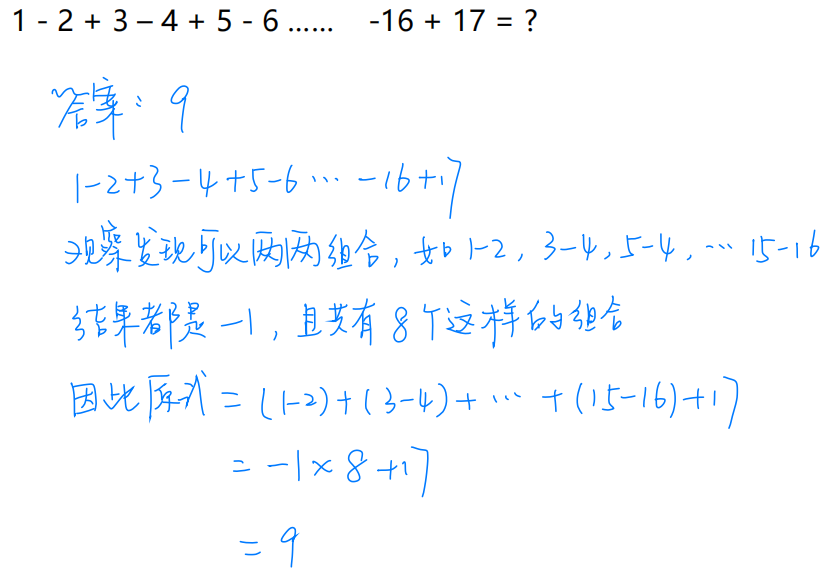 1 - 2 + 3 – 4 + 5 - 6 …… -16 + 17 = ?
答案：9
1-2+3-4+5-6…-16+17
观察发现可以两两组合，如1-2，3-4，5-4，…15-16
结果都是-1，且共有8个这样的组合
因此原式=(1-2)+(3-4)+…+(15-16)+17
=-1×8+17
=9